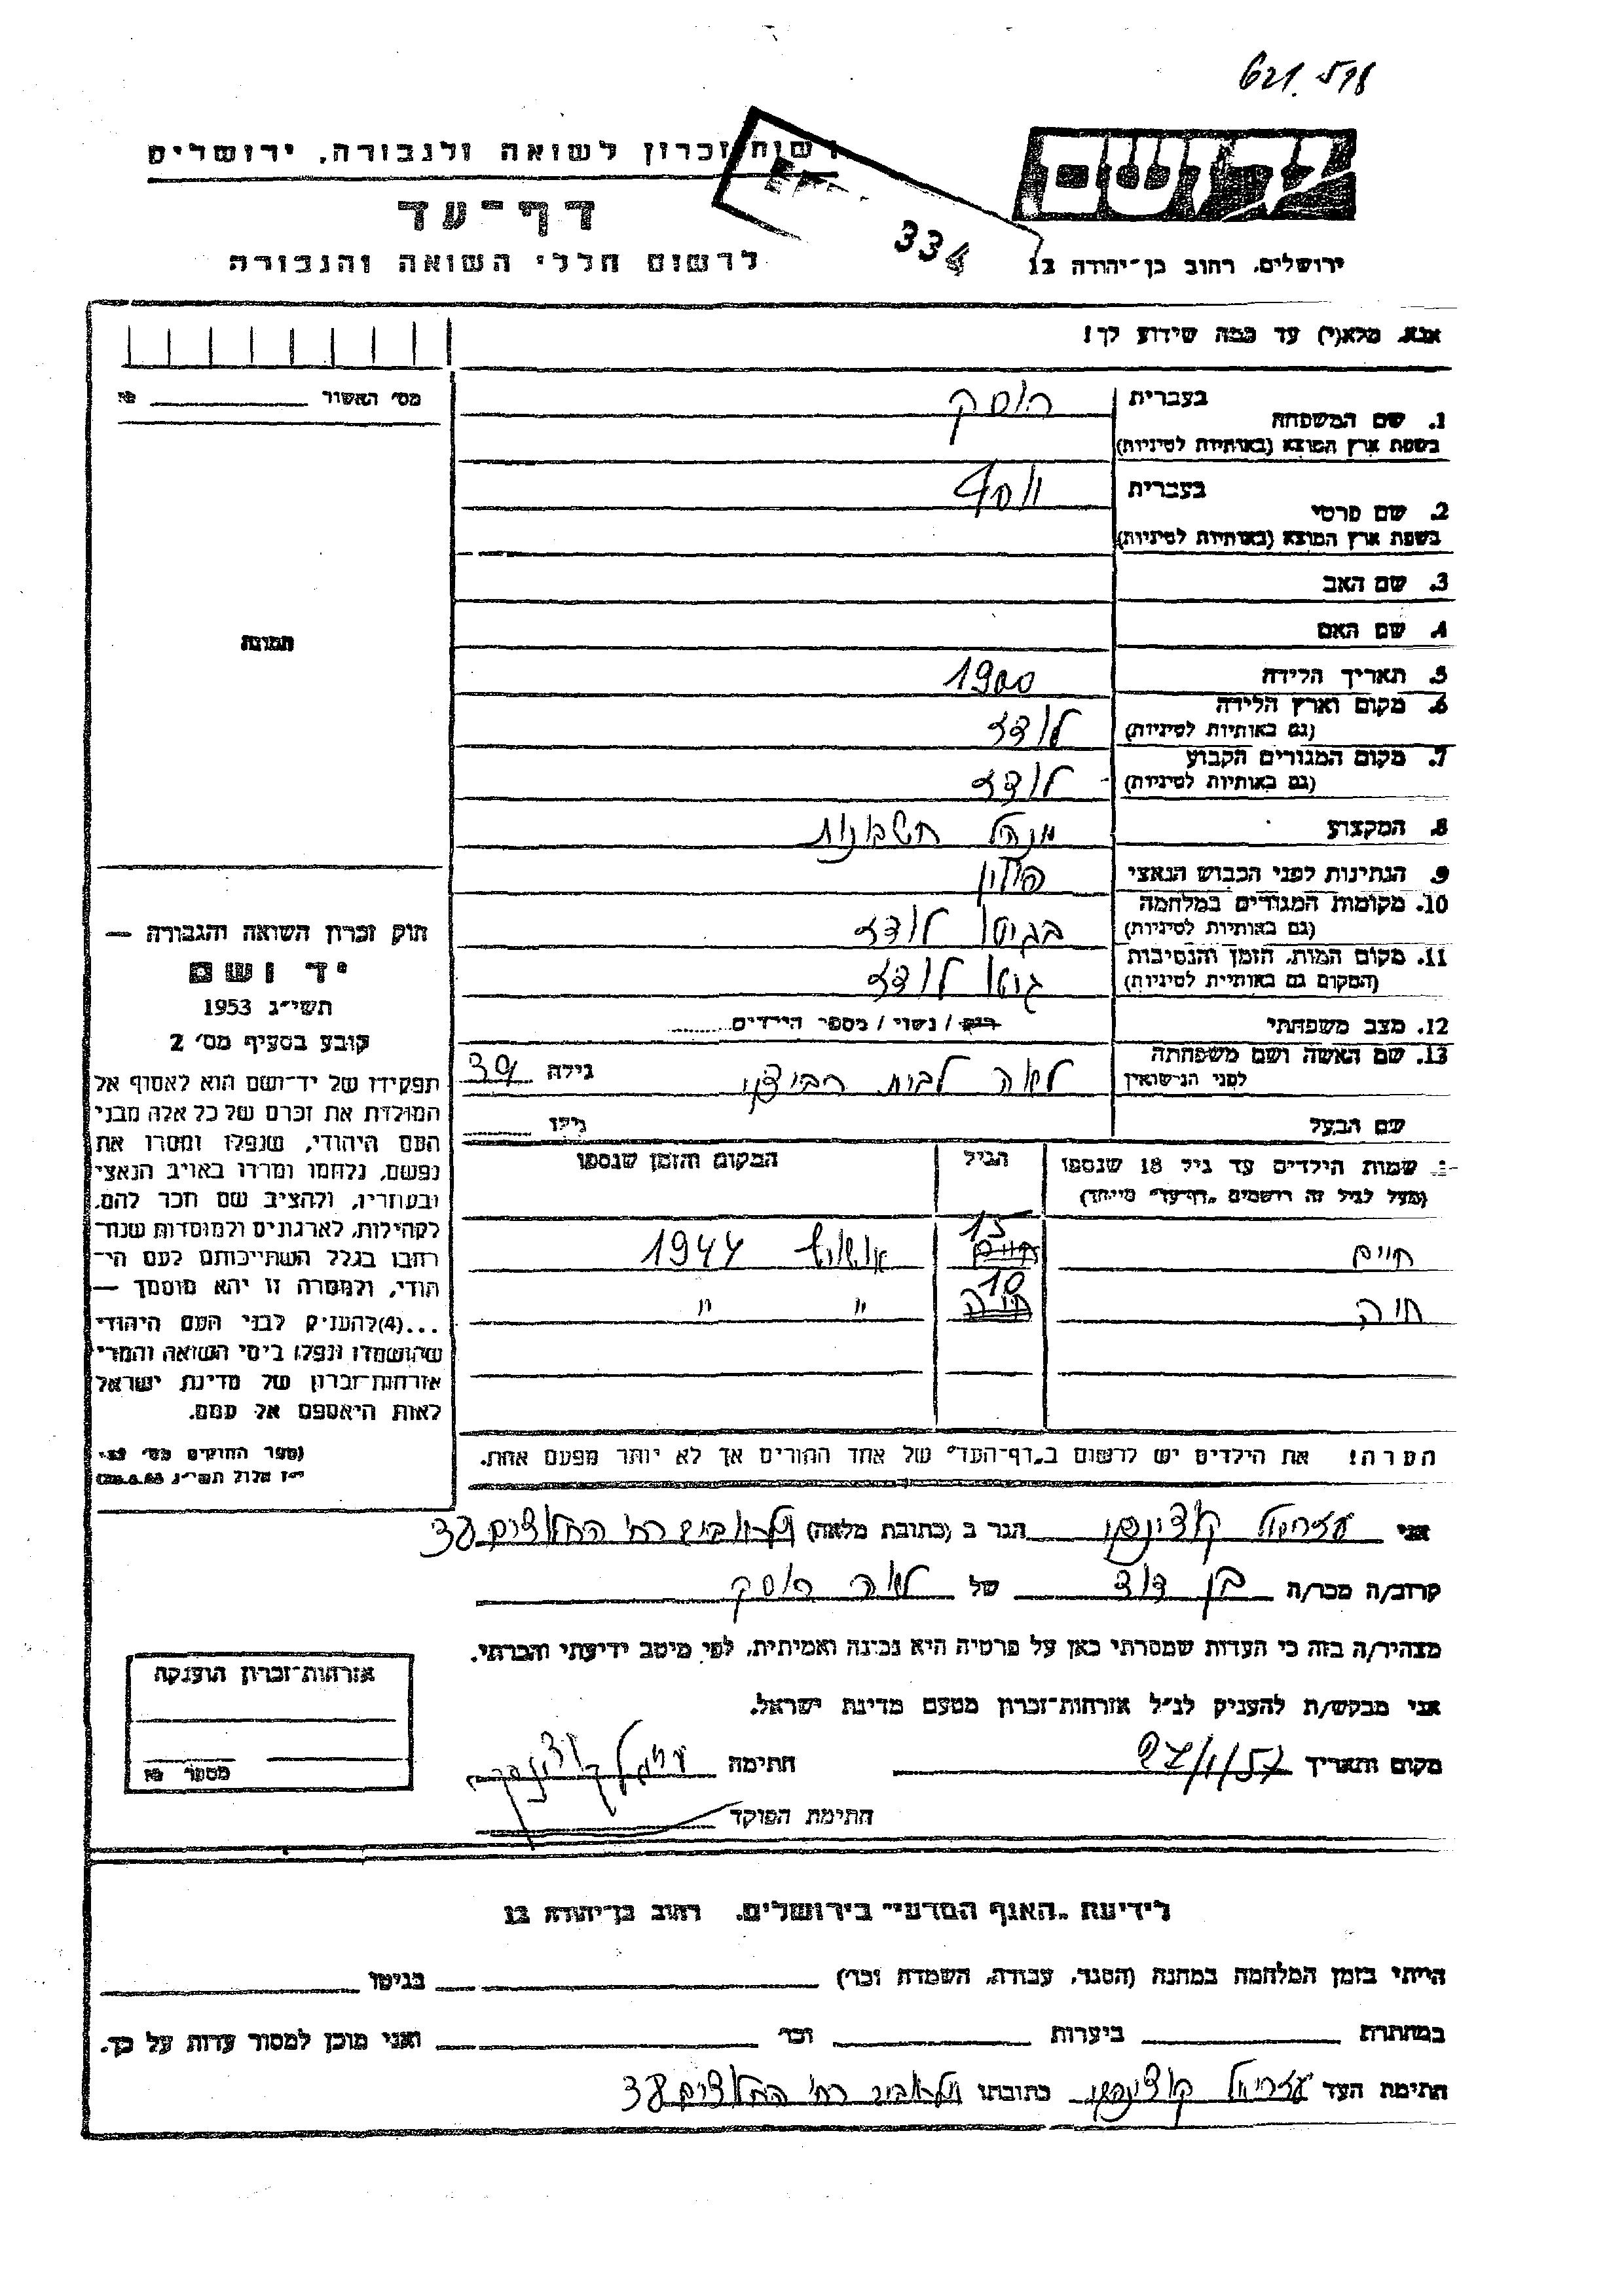 621.518
יד ושם
רשות זכרון לשואה ולגבורה, ירושלים
דף־עד
לרשום חללי השואה והגבורה
334
ירושלים, רחוב בן־יהודה 12
אנא, מלא(י) עד כמה שידוע לך!
מס' האשור
1. שם המשפחה
בעברית
רוסק
בשפת ארץ המוצא (באותיות לטיניות)
2. שם פרטי
בעברית
יוסף
בשפת ארץ המוצא (באותיות לטיניות)
3. שם האב
4. שם האם
תמונה
5. תאריך הלידה 1900
6. מקום וארץ הלידה
(גם באותיות לטיניות) לודז
7. מקום המגורים הקבוע
(גם באותיות לטיניות) לודז
8. המקצוע מנהל חשבונות
9. הנתינות לפני הכבוש הנאצי פולין
10. מקומות המגורים במלחמה
(גם באותיות לטיניות) בגיטו לודז
11. מקום המות, הזמן והנסיבות
(המקום גם באותיות לטיניות) גיטו לודז
12. מצב משפחתי רווק / נשוי / מספר הילדים
13. שם האשה ושם משפחתה
לפני הנישואין לאה לבית גילה 39
שם הבעל גילו
שמות הילדים עד גיל 18 שנספו הגיל המקום והזמן שנספו
(מעל לגיל זה רושמים „דף־עד" מיוחד)
חיים 13 אושויץ 1944
חוה 10 " "
הערה! את הילדים יש לרשום ב„דף־העד" של אחד ההורים אך לא יותר מפעם אחת.
חוק זכרון השואה והגבורה —
יד ושם
תשי"ג 1953
קובע בסעיף מס' 2
תפקידו של יד־ושם הוא לאסוף אל
המולדת את זכרם של כל אלה מבני
העם היהודי, שנפלו ומסרו את
נפשם, נלחמו ומרדו באויב הנאצי
ובעוזריו, ולהציב שם וזכר להם,
לקהילות, לארגונים ולמוסדות שנח־
רבו בגלל השתייכותם לעם הי־
הודי, ולמטרה זו יהא מוסמך —
...(4)להעניק לבני העם היהודי
שהושמדו ונפלו בימי השואה והמרי
אזרחות־זכרון של מדינת ישראל
לאות היאספם אל עמם.
(ספר החוקים מס' 132
י"ז אלול תשי"ג 28.8.53)
אני עזריאל הגר ב (כתובת מלאה) תל־אביב רח' החלוצים 38
קרוב/ה מכר/ה בן דוד של לאה רוסק
מצהיר/ה בזה כי העדות שמסרתי כאן על פרטיה היא נכונה ואמיתית, לפי מיטב ידיעתי והכרתי.
אני מבקש/ת להעניק לנ"ל אזרחות־זכרון מטעם מדינת ישראל.
מקום ותאריך 27/1/57 חתימה
חתימת הפוקד
אזרחות־זכרון הוענקה
מספר
לידיעת „האגף המדעי" בירושלים, רחוב בן־יהודה 12
הייתי בזמן המלחמה במחנה (הסגר, עבודה, השמדה וכו') בגיטו
במחתרת ביערות וכו' ואני מוכן למסור עדות על כך.
חתימת העד עזריאל כתובתו תל־אביב רח' החלוצים 38